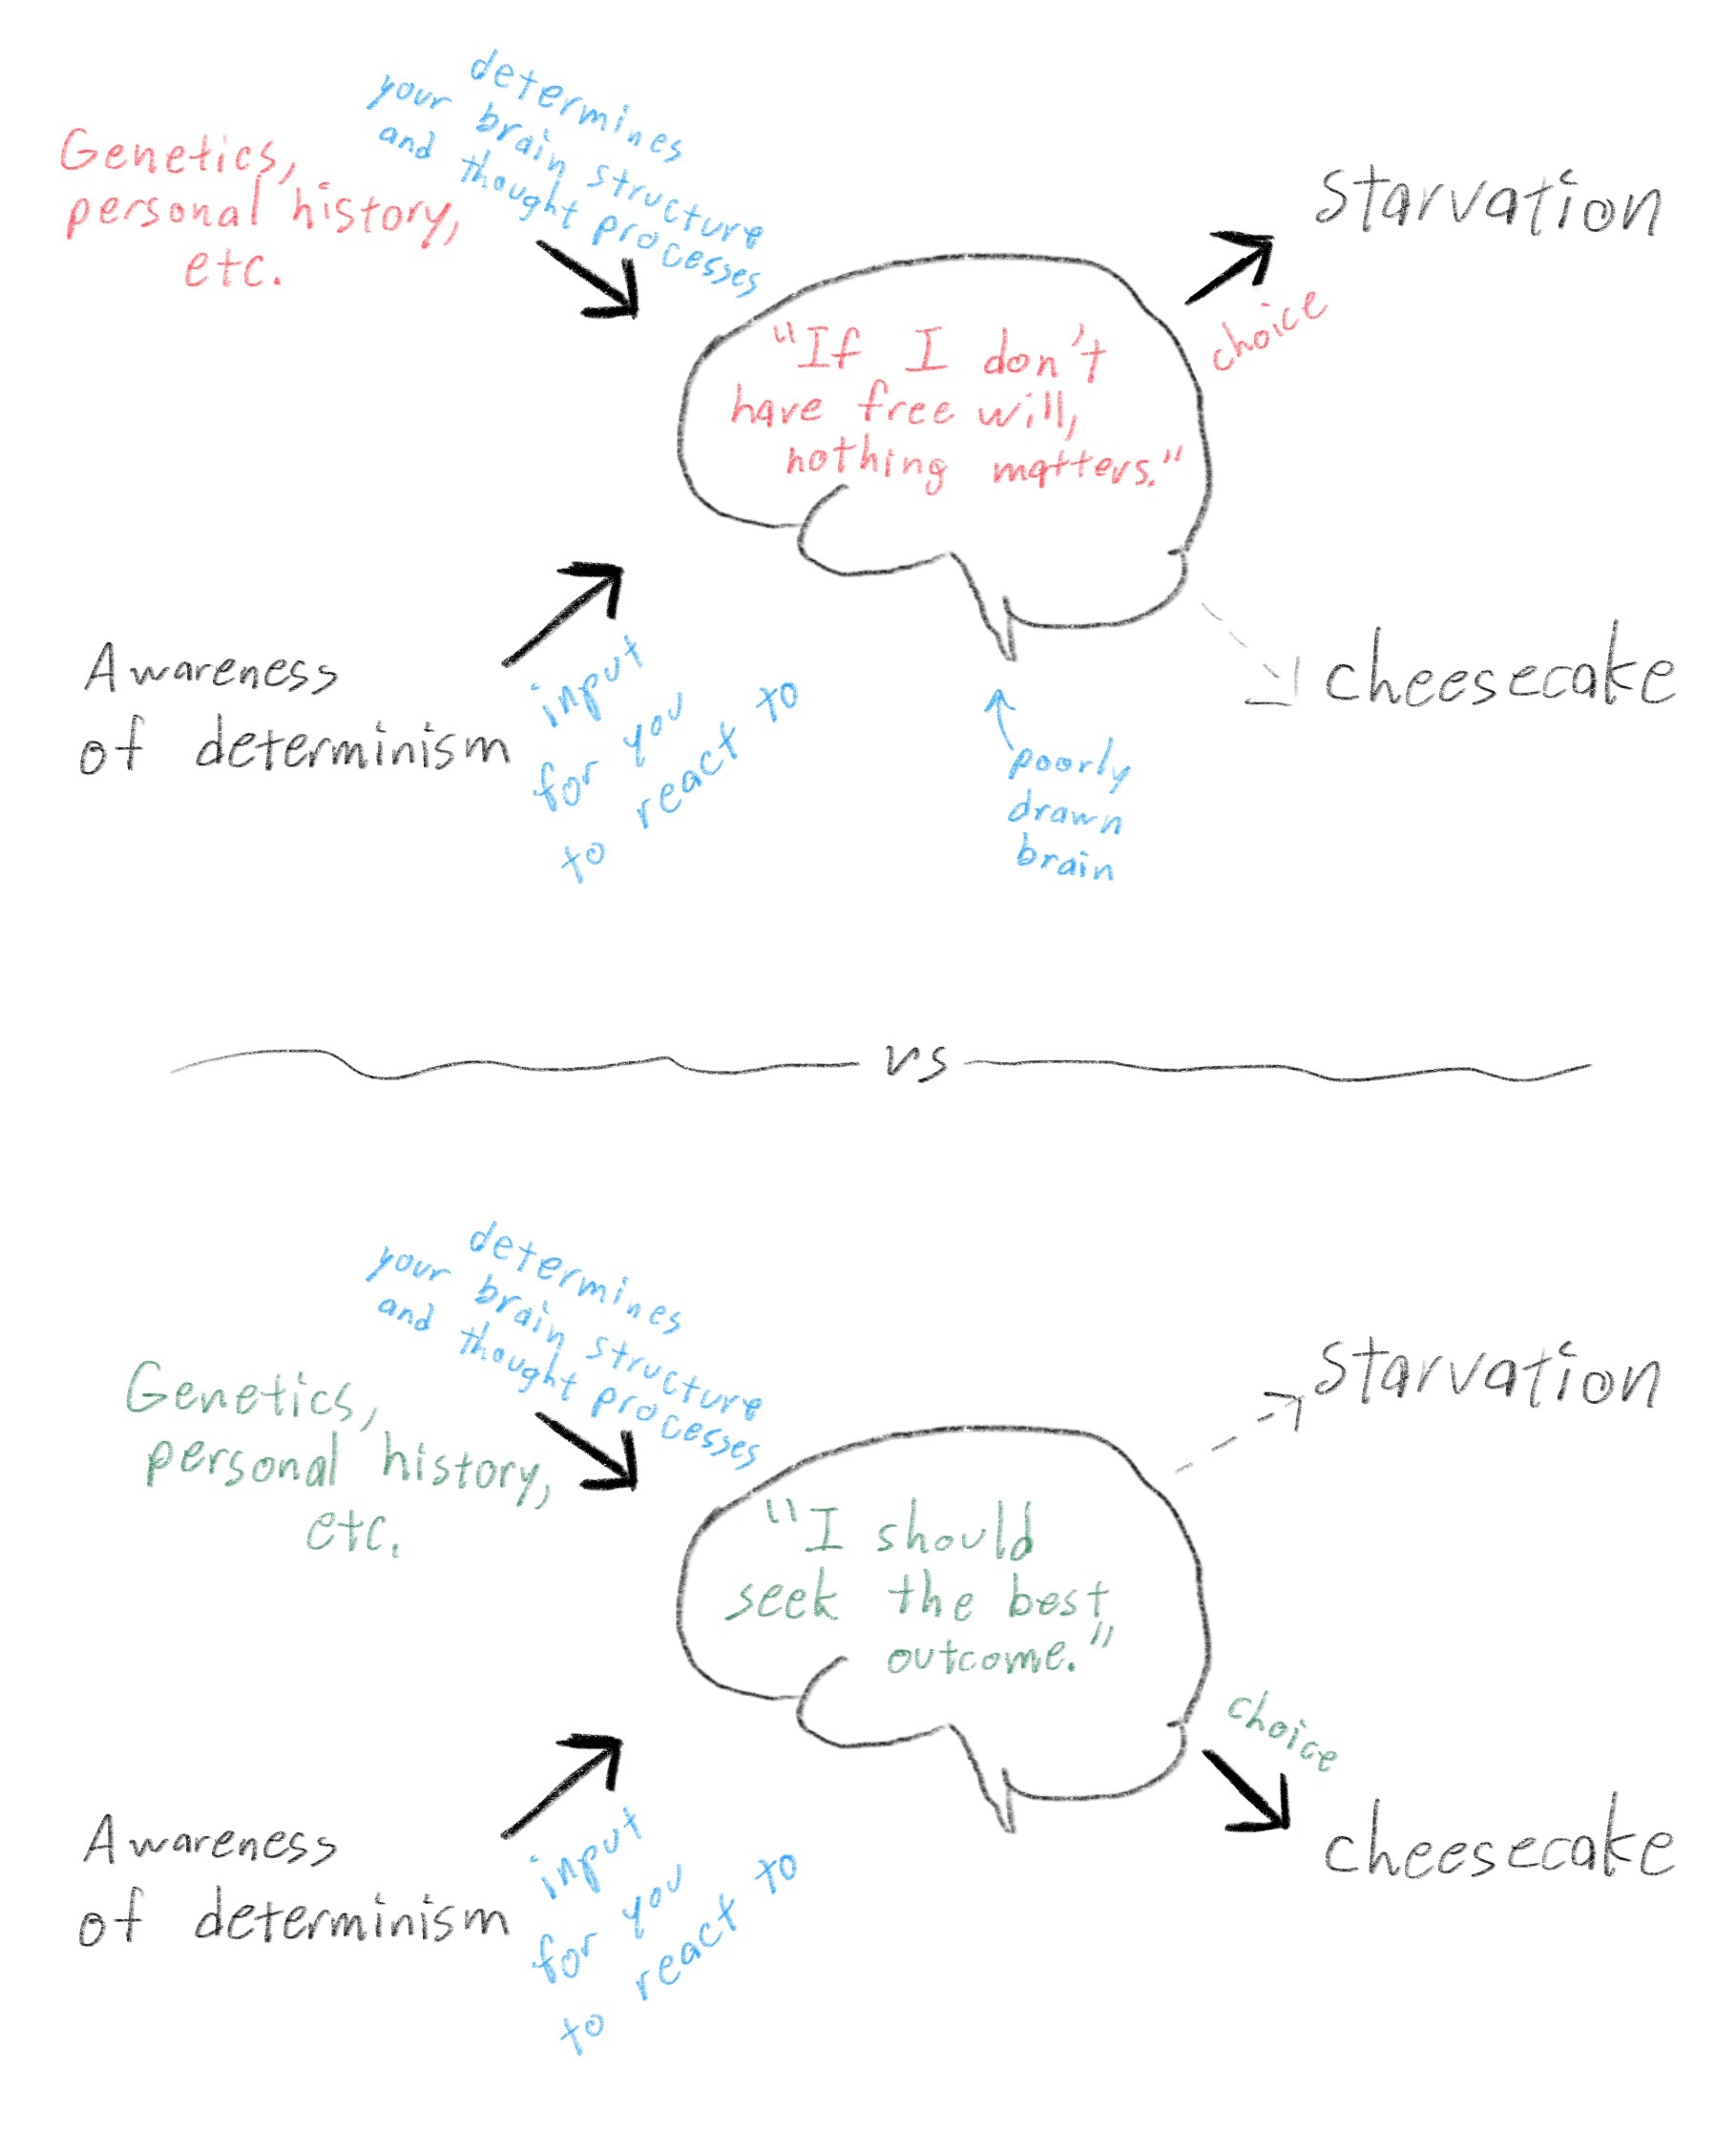 determines
your brain structure
and thought processes
Genetics,
personal history,
etc.
starvation
choice
"If I don't
have free will,
nothing matters."
Awareness
of determinism
input
for you
to react to
cheesecake
poorly
drawn
brain
vs
determines
your brain structure
and thought processes
Genetics,
personal history,
etc.
starvation
"I should
seek the best
outcome."
choice
Awareness
of determinism
input
for you
to react to
cheesecake